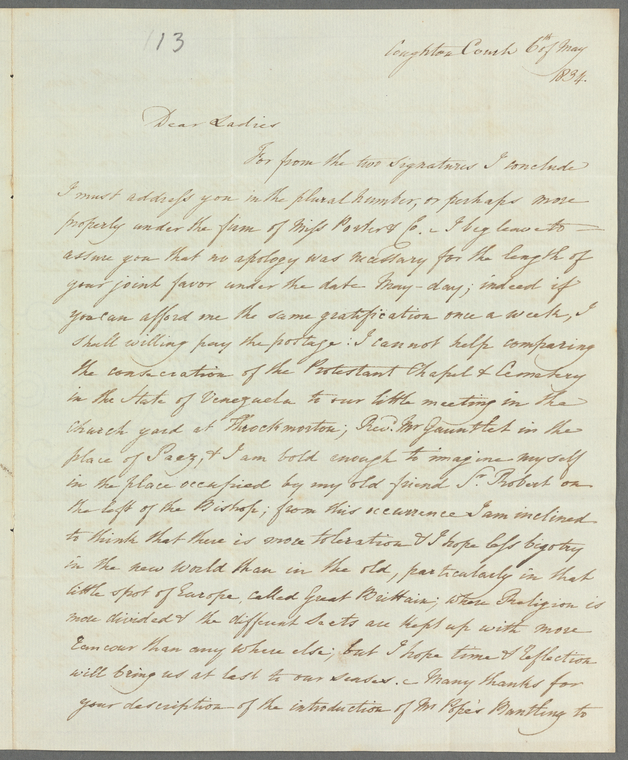 113
Coughton Court 6th of May
1834.
Dear Ladies
For from the two signatures I conclude
I must address you in the plural number, or perhaps more
properly under the firm of Miss Porter & Co. I beg leave to
assure you that no apology was necessary for the length of
your joint favor under the date May-day; indeed if
you can afford me the same gratification once a week, I
shall willing pay the postage: I cannot help comparing
the consecration of the Protestant Chapel & Cemetery
in the State of Venezuela to our little meeting in the
church yard at Throckmorton; Revd. Mr Gauntlet in the
place of Paez, & I am bold enough to imagine myself
in the place occupied by my old friend Sr. Robert on
the left of the Bishop; from this occurrence I am inclined
to think that there is more toleration & I hope less bigotry
in the new world than in the old, particularly in that
little spot of Europe called Great Brittain; where Religion is
more divided & the different Sects are kept up with more
Rancour than any where else; but I hope time & Reflection
will bring us at last to our senses. Many thanks for
your description of the introduction of Mr Pope's Bantling to